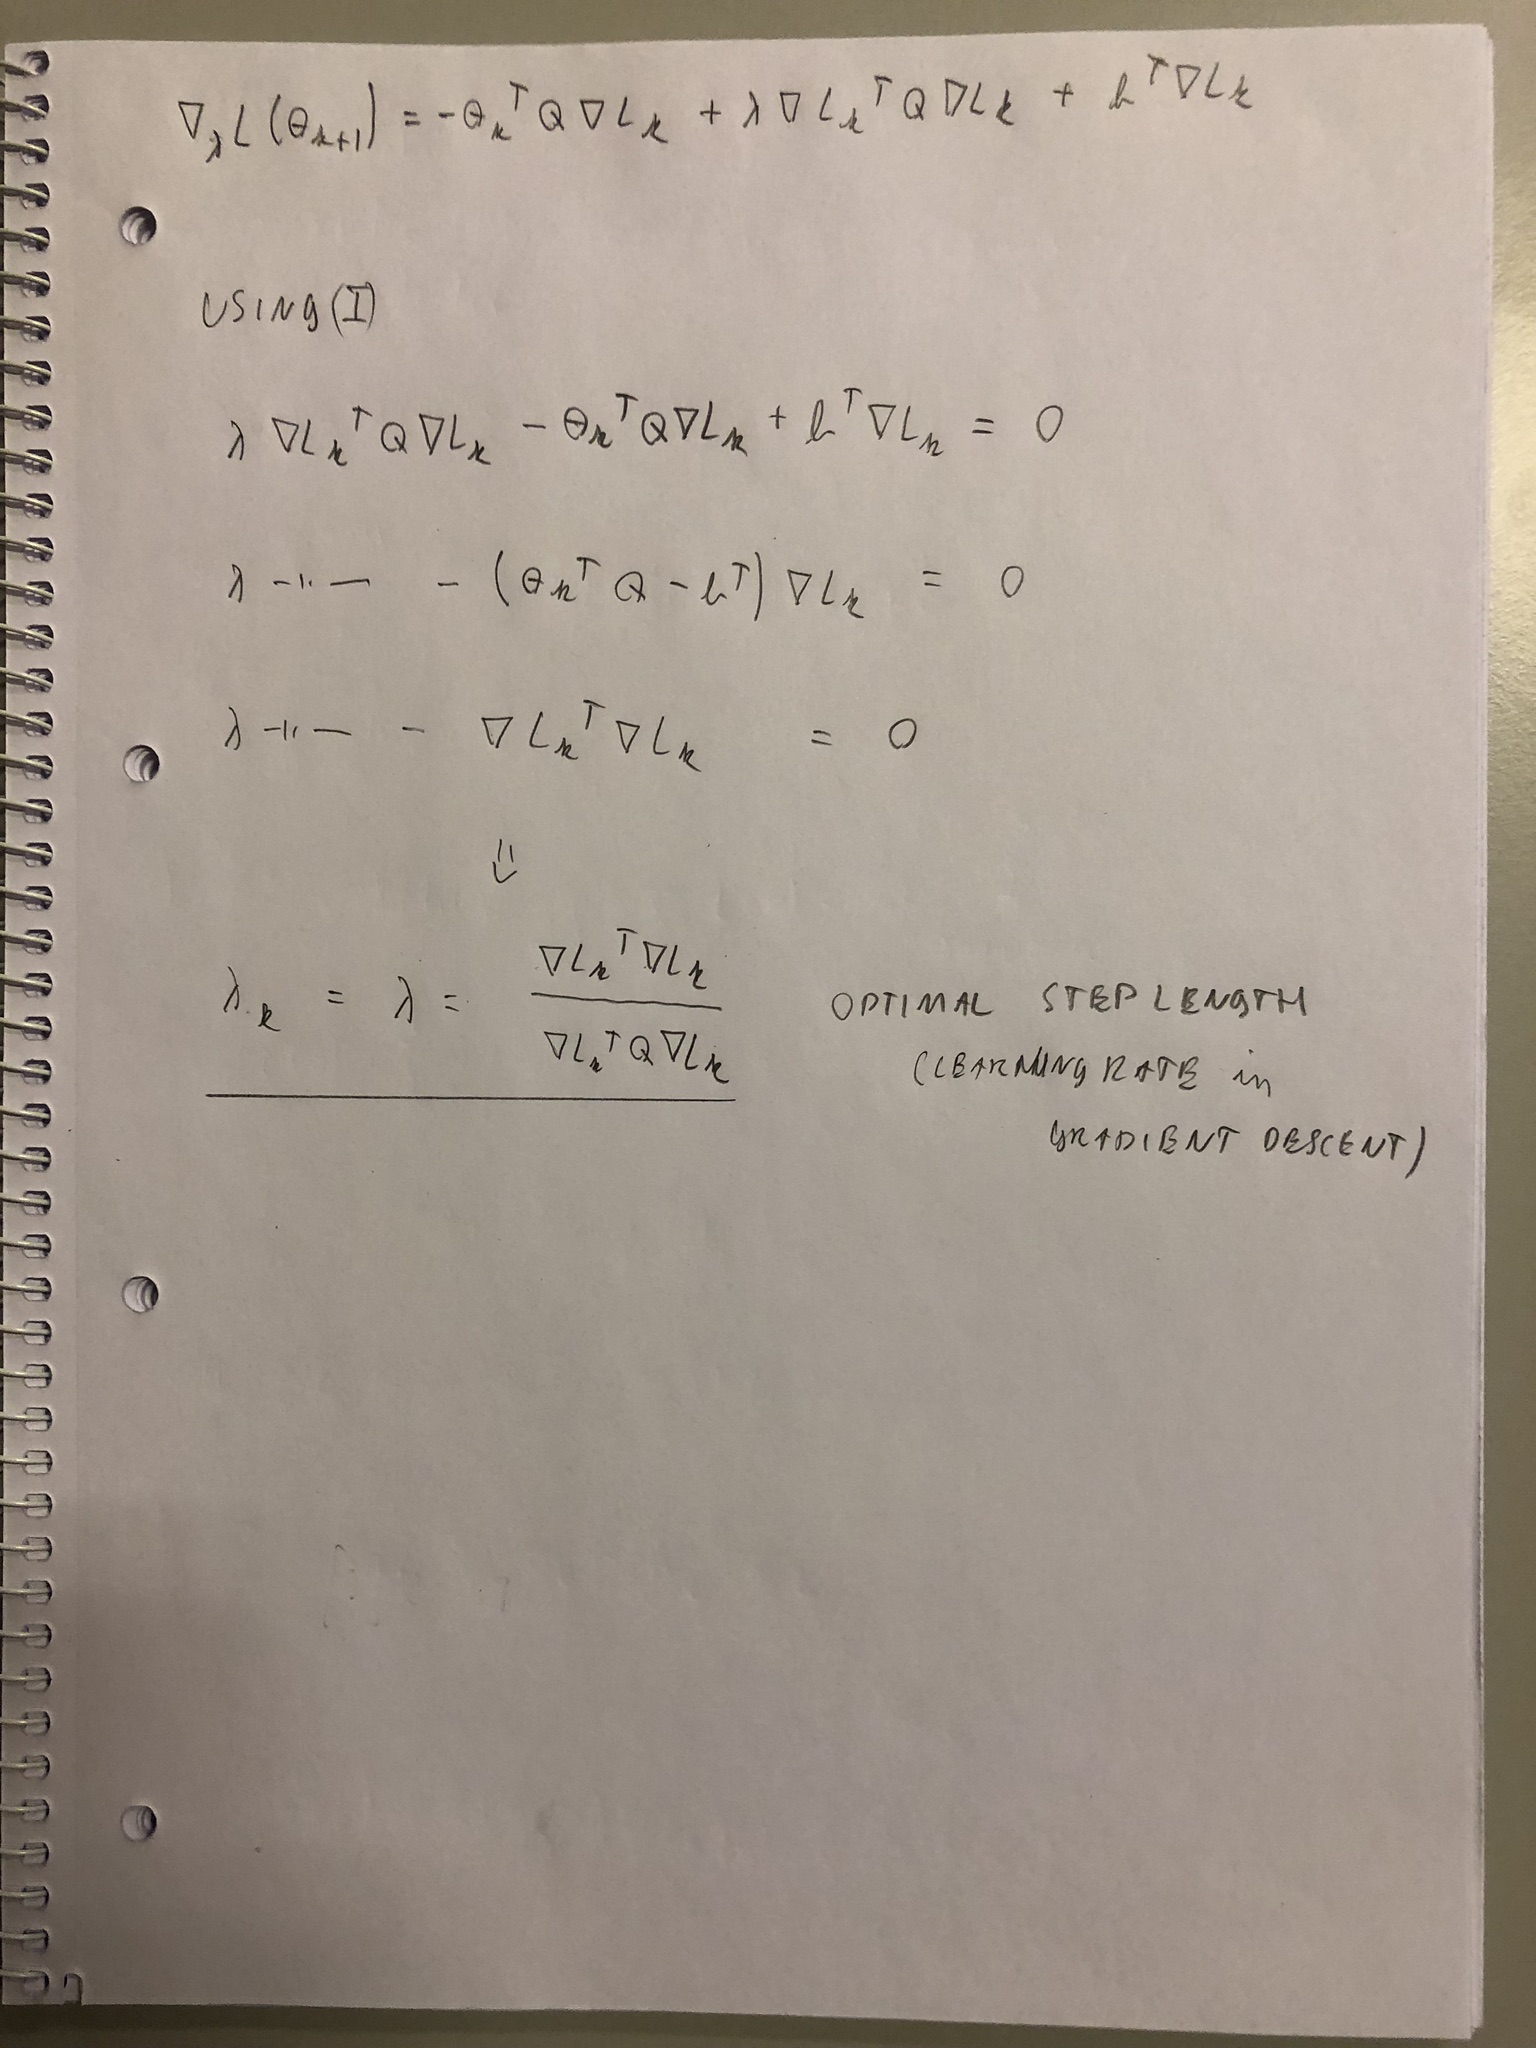 ∇_λ L(θ_{k+1}) = -θ_k^T Q ∇L_k + λ ∇L_k^T Q ∇L_k + b^T ∇L_k
USING (I)
λ ∇L_k^T Q ∇L_k - θ_k^T Q ∇L_k + b^T ∇L_k = 0
λ -"- - (θ_k^T Q - b^T) ∇L_k = 0
λ -"- - ∇L_k^T ∇L_k = 0
⇓
λ_k = λ = \frac{∇L_k^T ∇L_k}{∇L_k^T Q ∇L_k} OPTIMAL STEP LENGTH
(LEARNING RATE in
GRADIENT DESCENT)